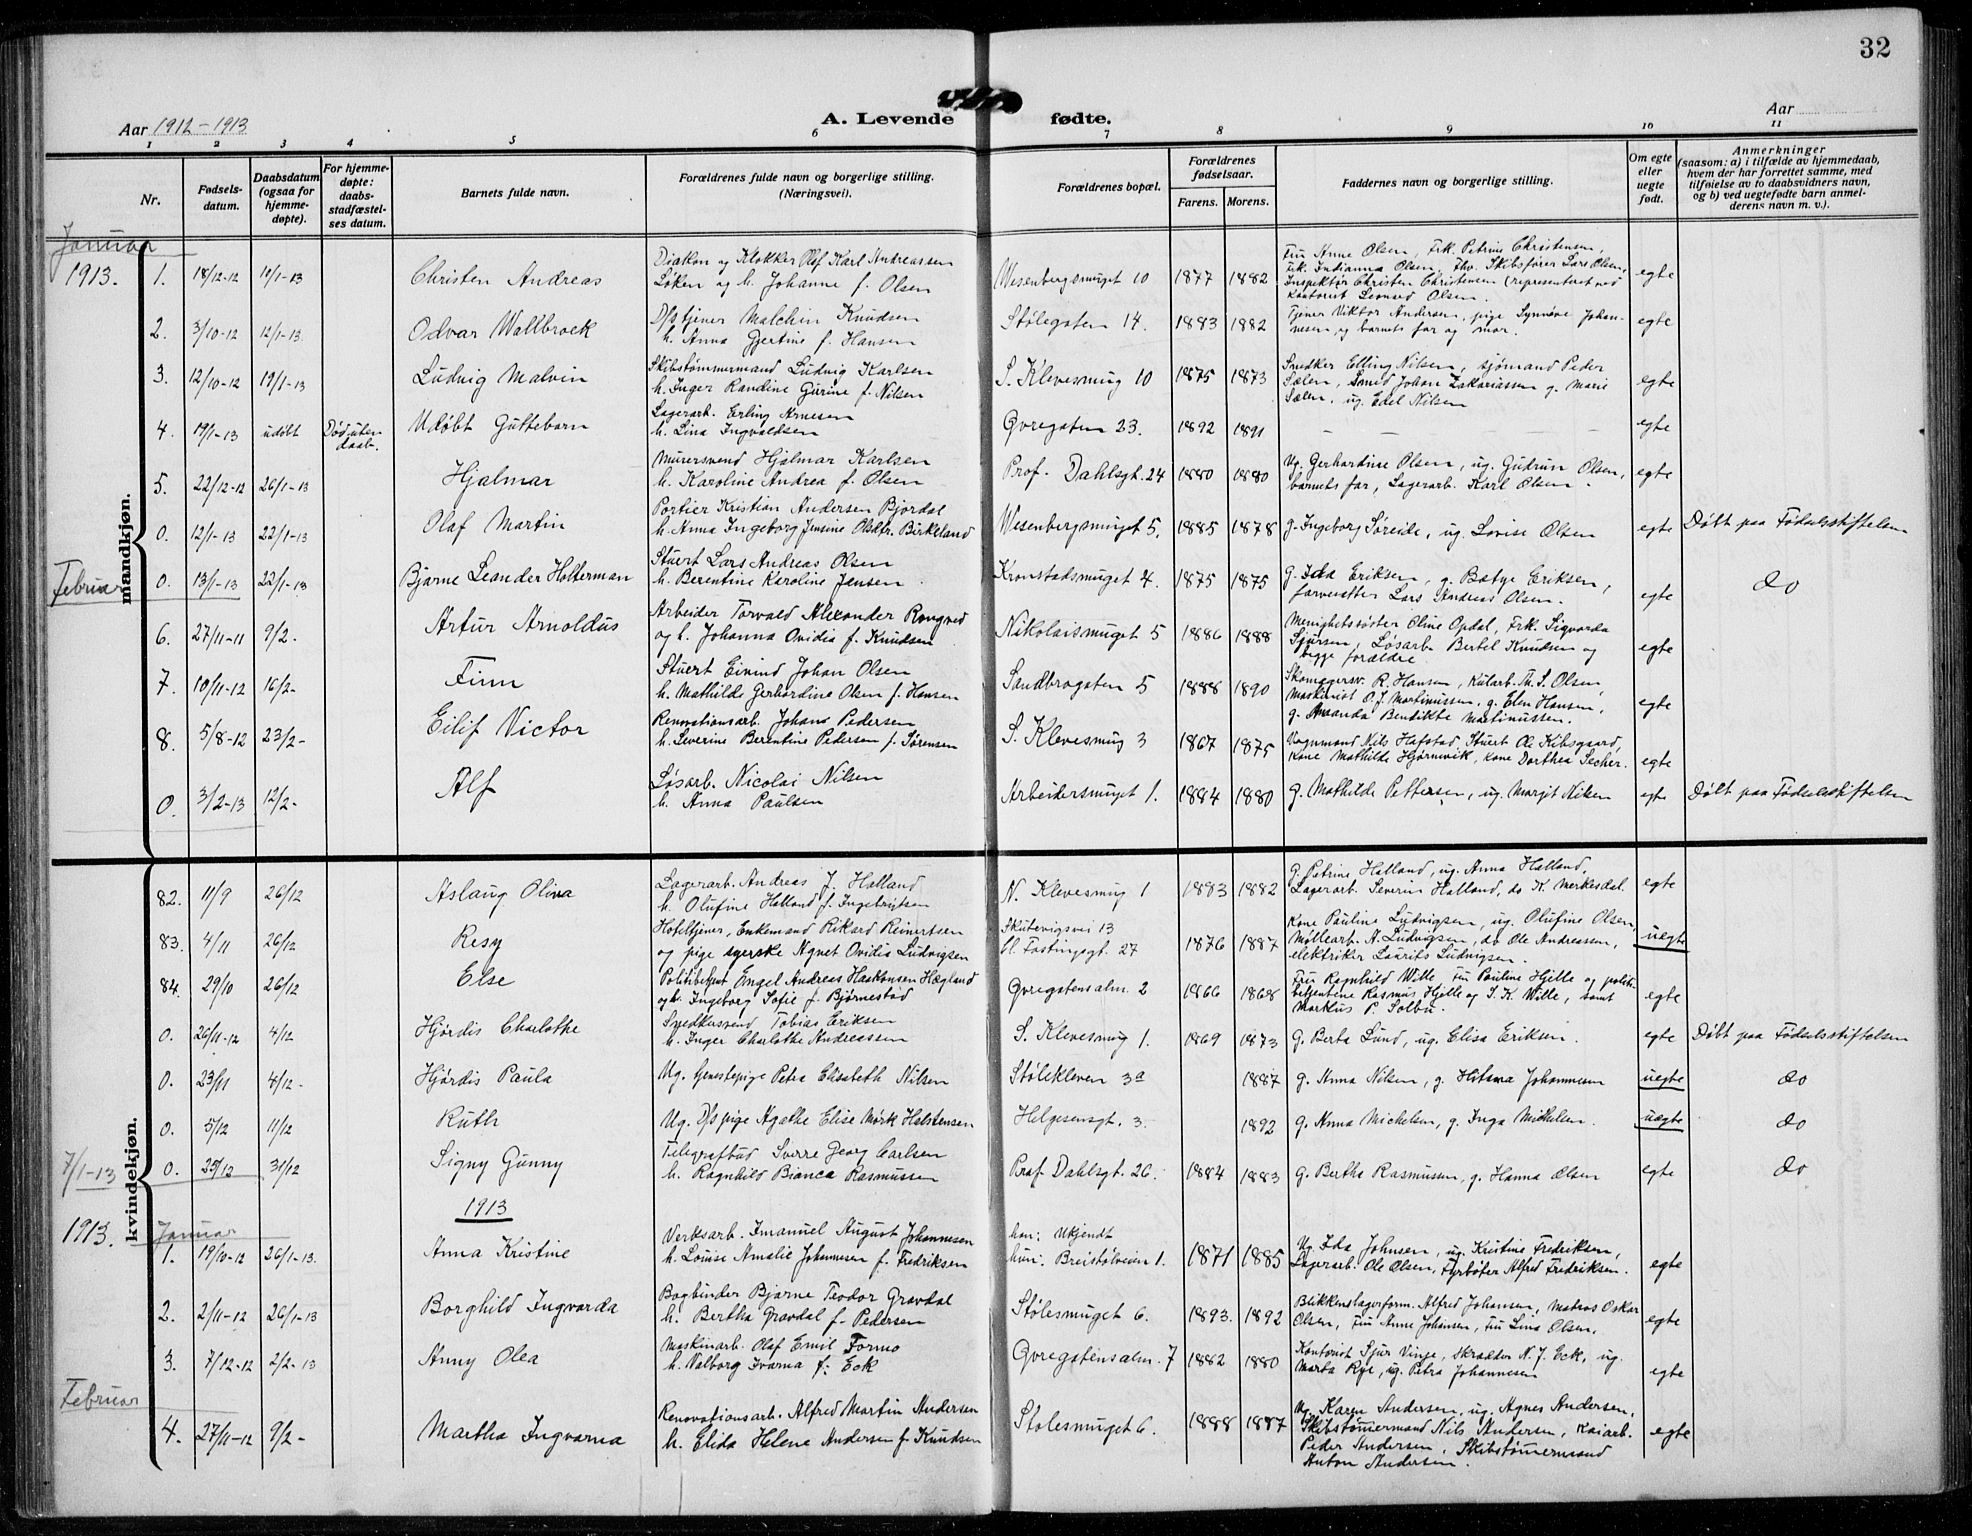 32
Aar 1912-1913
A. Levende fødte.
Aar
1 2 3 4 5 6 7 8 9 10 11
Nr.
Fødsels-
datum.
Daabsdatum
(ogsaa for
hjemme-
døpte).
For hjemme-
døpte:
daabs-
stadfæstel-
ses datum.
Barnets fulde navn.
Forældrenes fulde navn og borgerlige stilling.
(Næringsvei).
Forældrenes bopæl.
Forældrenes
fødselsaar.
Farens. Morens.
Faddernes navn og borgerlige stilling.
Om egte
eller
uegte
født.
Anmerkninger
(saasom: a) i tilfælde av hjemmedaab,
hvem der har forrettet samme, med
tilføielse av to daabsvidners navn,
og b) ved uegtefødte barn anmel-
derens navn m. v.).
mandkjøn.
Januar
1913.
1. 18/12-12 10/1-13 Christen Andreas
Diakon og Klokker Olaf Karl Andreassen
Løken og h. Johanne f. Olsen
Wesenbergsmuget 10 1877 1882
Fru Anne Olsen, Frk. Petrine Christensen,
Frk. Indianna Olsen, fhv. Skibsfører Lars Olsen,
Inspektør Christen Christensen (representeret ved
kontorist Leonard Olsen.
egte
2. 3/10-12 12/1-13 Odvar Wallbroek
D/S tjener Malchin Knudsen
h. Anna Gjertine f. Hansen
Stølegaten 14. 1883 1882
Tjener Viktor Andersen, pige Synnøve Johan-
nesen og barnets far og mor.
egte
3. 12/10-12 19/1-13 Ludvig Malvin
Skibstømmermand Ludvig Karlsen
h. Inger Randine Gurine f. Nilsen
S. Klevesmug 10 1875 1873
Snedker Elling Nilsen, sjømand Peder
Sælen, Smed Johan Zakariassen g. Marie
Sælen, ug. Edel Nilsen
egte
4. 19/1-13 udøbt Død uten
daab.
Udøbt Guttebarn
Lagerarb. Erling Arnesen
h. Lina Ingvaldsen
Øvregaten 23. 1892 1891
egte
5. 22/12-12 26/1-13 Hjalmar
Murersvend Hjalmar Karlsen
h. Karoline Andrea f. Olsen
Prof. Dahlsgt. 24 1880 1880
Ug. Gerhardine Olsen, ug. Gudrun Olsen,
barnets far, Lagerarb. Karl Olsen.
egte
0. 12/1-13 22/1-13 Olaf Martin
Portier Kristian Andersen Bjordal
h. Anna Ingeborg Jensine Olsdtr. Birkeland
Wesenbergsmuget 5. 1885 1878
g. Ingeborg Søreide, ug. Lovise Olsen
egte Døbt paa Fødselsstiftelsen
Februar
0. 13/1-13 22/1-13 Bjarne Leander Holterman
Stuert Lars Andreas Olsen
h. Berentine Karoline Jansen
Kronstadsmuget 4. 1875 1875
g. Ida Eriksen, g. Batye Eriksen,
farverstter Lars Andreas Olsen.
egte do
6. 27/11-11 9/2- Artur Arnoldus
Arbeider Torvald Alexander Rongved
og h. Johanna Ovidia f. Knudsen
Nikolaismuget 5 1886 1888
Menighetssøster Oline Opdal, Frk. Sigvarda
Sjursen, Løsarb. Bertel Knudsen og
begge forældre.
egte
7. 10/11-12 16/2- Finn
Stuert Eivind Johan Olsen
h. Mathilde Gerhardine Olsen f. Hansen
Sandbrogaten 5 1888 1890
Skomagersv. R. Hansen, Kularb. Th. S. Olsen,
Maskinist O. J. Martinussen, g. Elen Hansen,
g. Amanda Bendikte Martinussen.
egte
8. 5/8-12 23/2- Eilif Victor
Renovationsarb. Johans Pedersen
h. Severine Berentine Pedersen f. Sørensen
S. Klevesmug 3 1867 1875
Vognmand Nils Hafstad, Stuert Ole Kibsgaard,
kone Mathilde Hjørnevik, kone Dorthea Secher.
egte
0. 3/2-13 12/2- Alf
Løsarb. Nicolai Nilsen
h. Anna Paulsen
Arbeidersmuget 1. 1884 1880
g. Mathilde Pettersen, ug. Margit Nilsen
egte Døbt paa Fødselsstiftelsen
kvindekjøn.
82. 11/9 26/12 Aslaug Oliva
Lagerarb. Andreas J. Halland
h. Olufine Halland f. Ingebrigtsen
N. Klevesmug 1 1883 1882
g. Petrine Halland, ug. Anna Halland,
Lagerarb. Severin Halland, do K. Merkesdal.
egte
83. 4/11 26/12 Resy
Hoteltjener, Enkemand Rikard Reinertsen
og pige syerske Agnet Ovidia Ludvigsen
Skutevigsvei 13
Ll. Fastingsgt. 27 1876 1887
Kone Pauline Ludvigsen, ug. Olufine Olsen,
Møllearb. A. Ludvigsen, do Ole Andreassen,
elektriker Laurits Ludvigsen.
uegte
84. 29/10 26/12 Else
Politibetjent Engel Andreas Haakonsen Hægland
og h. Ingeborg Sofie f. Bjørnestad
Øvregatensalm. 2 1866 1868
Fru Ragnhild Wille, fru Pauline Hjelle og politi-
betjentene Rasmus Hjelle og S. K. Wille, samt
Markus P. Solbu.
egte
0. 26/11-12 4/12 Hjørdis Charlothe
Snedkersvend Tobias Eriksen
h. Inger Charlothe Andreassen
S. Klevesmug 1. 1869 1873
g. Berta Lund, ug. Elisa Eriksen.
egte Døbt paa Fødselsstiftelsen
0. 23/11 4/12- Hjørdis Paula
Ug. tjenestepige Petra Elisabeth Nilsen
Stølekleven 3a 1887
g. Anna Nilsen, g. Hilma Johannesen
uegte do
0. 5/12 11/12 Ruth
Ug. D/S pige Agathe Elise Mørk Halstensen
Helgesensgt. 3. 1892
g. Anna Michelsen, g. Inga Michelsen.
uegte do
7/1-13
0. 25/12 31/12 Signy Gunny
Telegrafbud Sverre Georg Carlsen
h. Ragnhild Bianca Rasmussen
Prof Dahlsgt. 26. 1884 1883
g. Bertha Rasmussen, g. Hanna Olsen
egte do
1913
1913. Januar
1. 19/10-12 26/1-13. Anna Kristine
Verksarb. Imanuel August Johannesen
h. Louise Amalie Johannesen f. Fredriksen
han: Ukjendt
hun: Breistølveien 1. 1871 1885
Ug. Ida Johnsen, ug. Kristine Fredriksen,
Lagerarb. Ole Olsen, Fyrbøter Alfred Fredriksen.
egte
2. 2/11-12 26/1-13 Borghild Ingvarda
Bogbinder Bjarne Teodor Gravdal
h. Bertha Gravdal f. Pedersen
Stølesmuget 6. 1893. 1892
Blikkenslagerform. Alfred Johansen, Matros Oskar
Olsen, Fru Anne Johansen, Fru Lina Olsen.
egte
3. 7/12-12 2/2-13 Anny Olea
Maskinarb. Olaf Emil Formo
h. Valborg Ivarna f. Eck
Øvregatensalm. 7 1882 1880
Kontorist Sjur Vinje, skrædder N. J. Eck, ug.
Marta Rye, ug. Petra Johannesen
egte
Februar
4. 27/11-12 9/2- Martha Ingvarna
Renovationsarb. Alfred Martin Andersen
h. Elida Helene Andersen f. Knudsen
Stølesmuget 6. 1888 1887
Ug. Karen Andersen, ug. Agnes Andersen,
Skibstømermand Nils Andersen, Kaiarb.
Peder Andersen, Skibstømermand
Anton Andersen.
egte